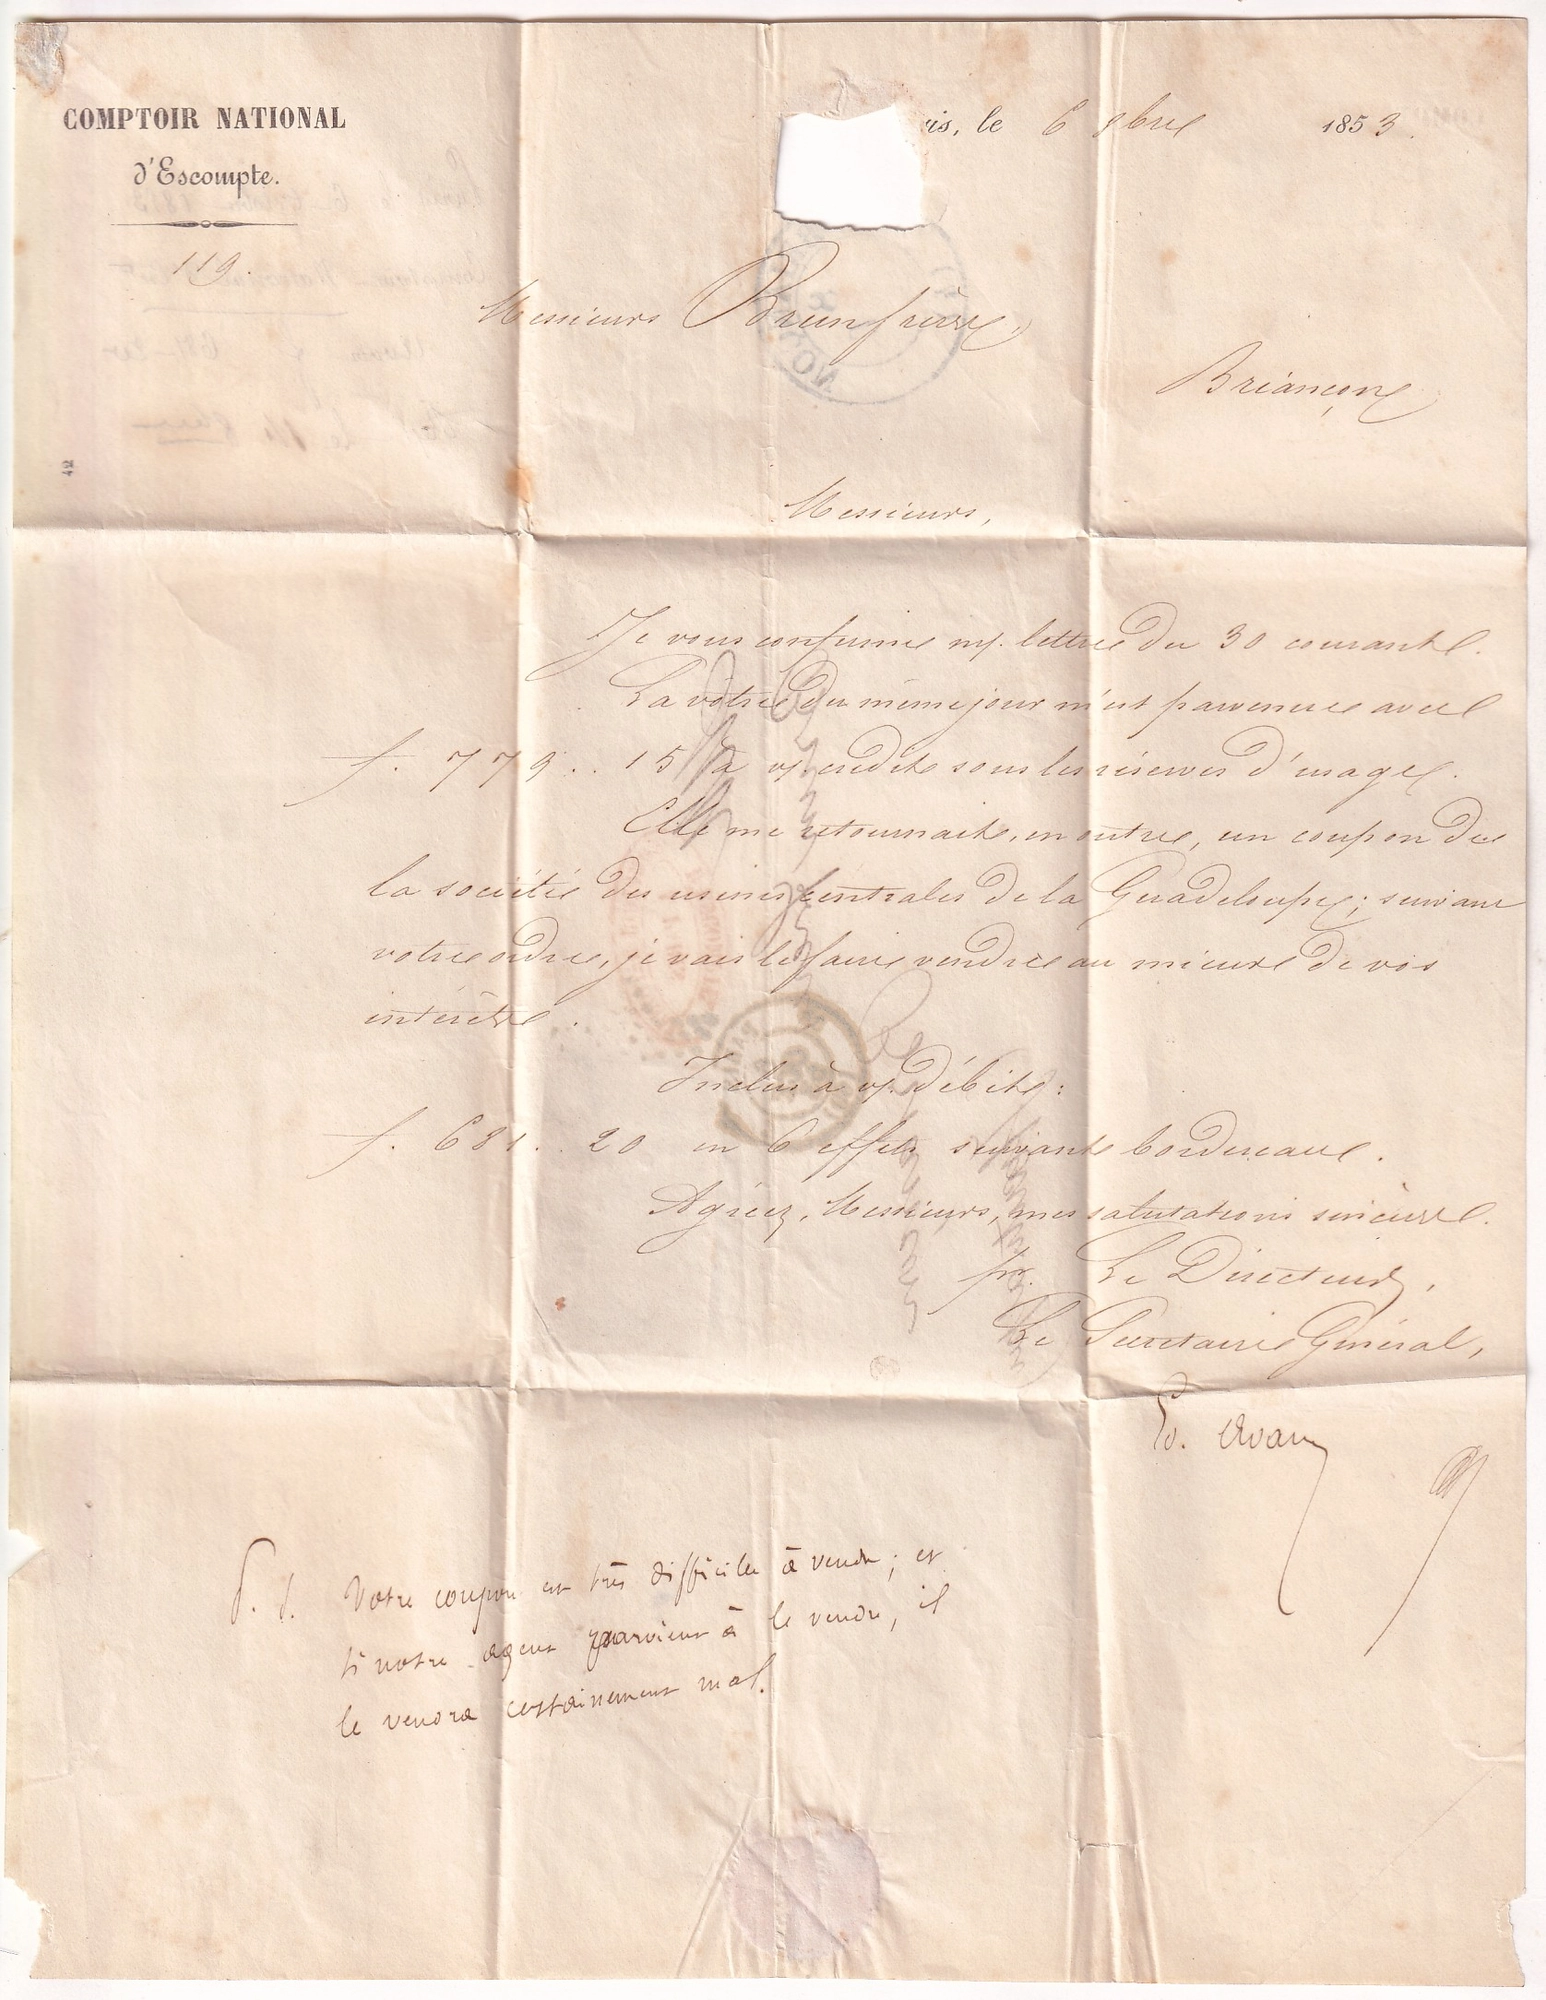 COMPTOIR NATIONAL
d'Escompte.
119.
is, le 6 8bre 1853.
Messieurs Brun frères,
Briançon
42
Messieurs,
Je vous confirme m/. lettre du 30 courant.
La vôtre du même jour m'est parvenue avec
f. 779.. 15 à v/. crédit sous les réserves d'usage.
Elle me retournait, en outre, un coupon de
la société des usines centrales de la Guadeloupe; suivant
votre ordre, je vais le faire vendre au mieux de vos
intérêts.
Inclus à v/. débit:
f. 681.. 20 en 6 effets suivant bordereau.
Agréez, Messieurs, mes salutations sincères.
pr. Le Directeur,
Le Secrétaire Général,
P. S. Votre coupon est très difficile à vendre; et
si notre agent parvient à le vendre, il
le vendra certainement mal.